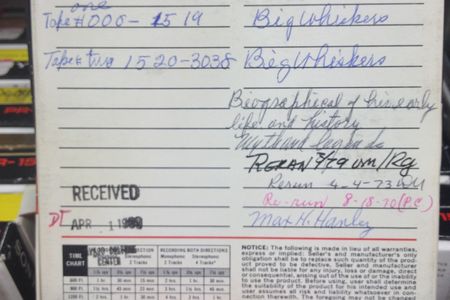 one
Tape # 000 - 1519 Big Whiskers
Tape # two 1520-3038 Big Whiskers
Biographical of his early
life and history
Myth and legends
RERAN 7/79 um/Rg
Rerun 4-4-73
Re-run 8-18-70 (P.C.)
Max H. Hanley
RECEIVED
APR 1
DT
TIME
CHART
RECORDING BOTH DIRECTIONS
Stereophonic
2 Tracks
Monophonic
NOTICE: The following is made in lieu of all warranties,
express or implied: Seller's and manufacturer's only
obligation shall be to replace such quantity of the product
proved to be defective. Seller and manufacturer
shall not be liable for any injury, loss or damage, direct
or consequential, arising out of the use of or the inability
to use the product. Before using, user shall determine
the suitability of the product for his intended use and
user assumes all risk and liability whatsoever in con-
nection therewith. The foregoing may not be changed